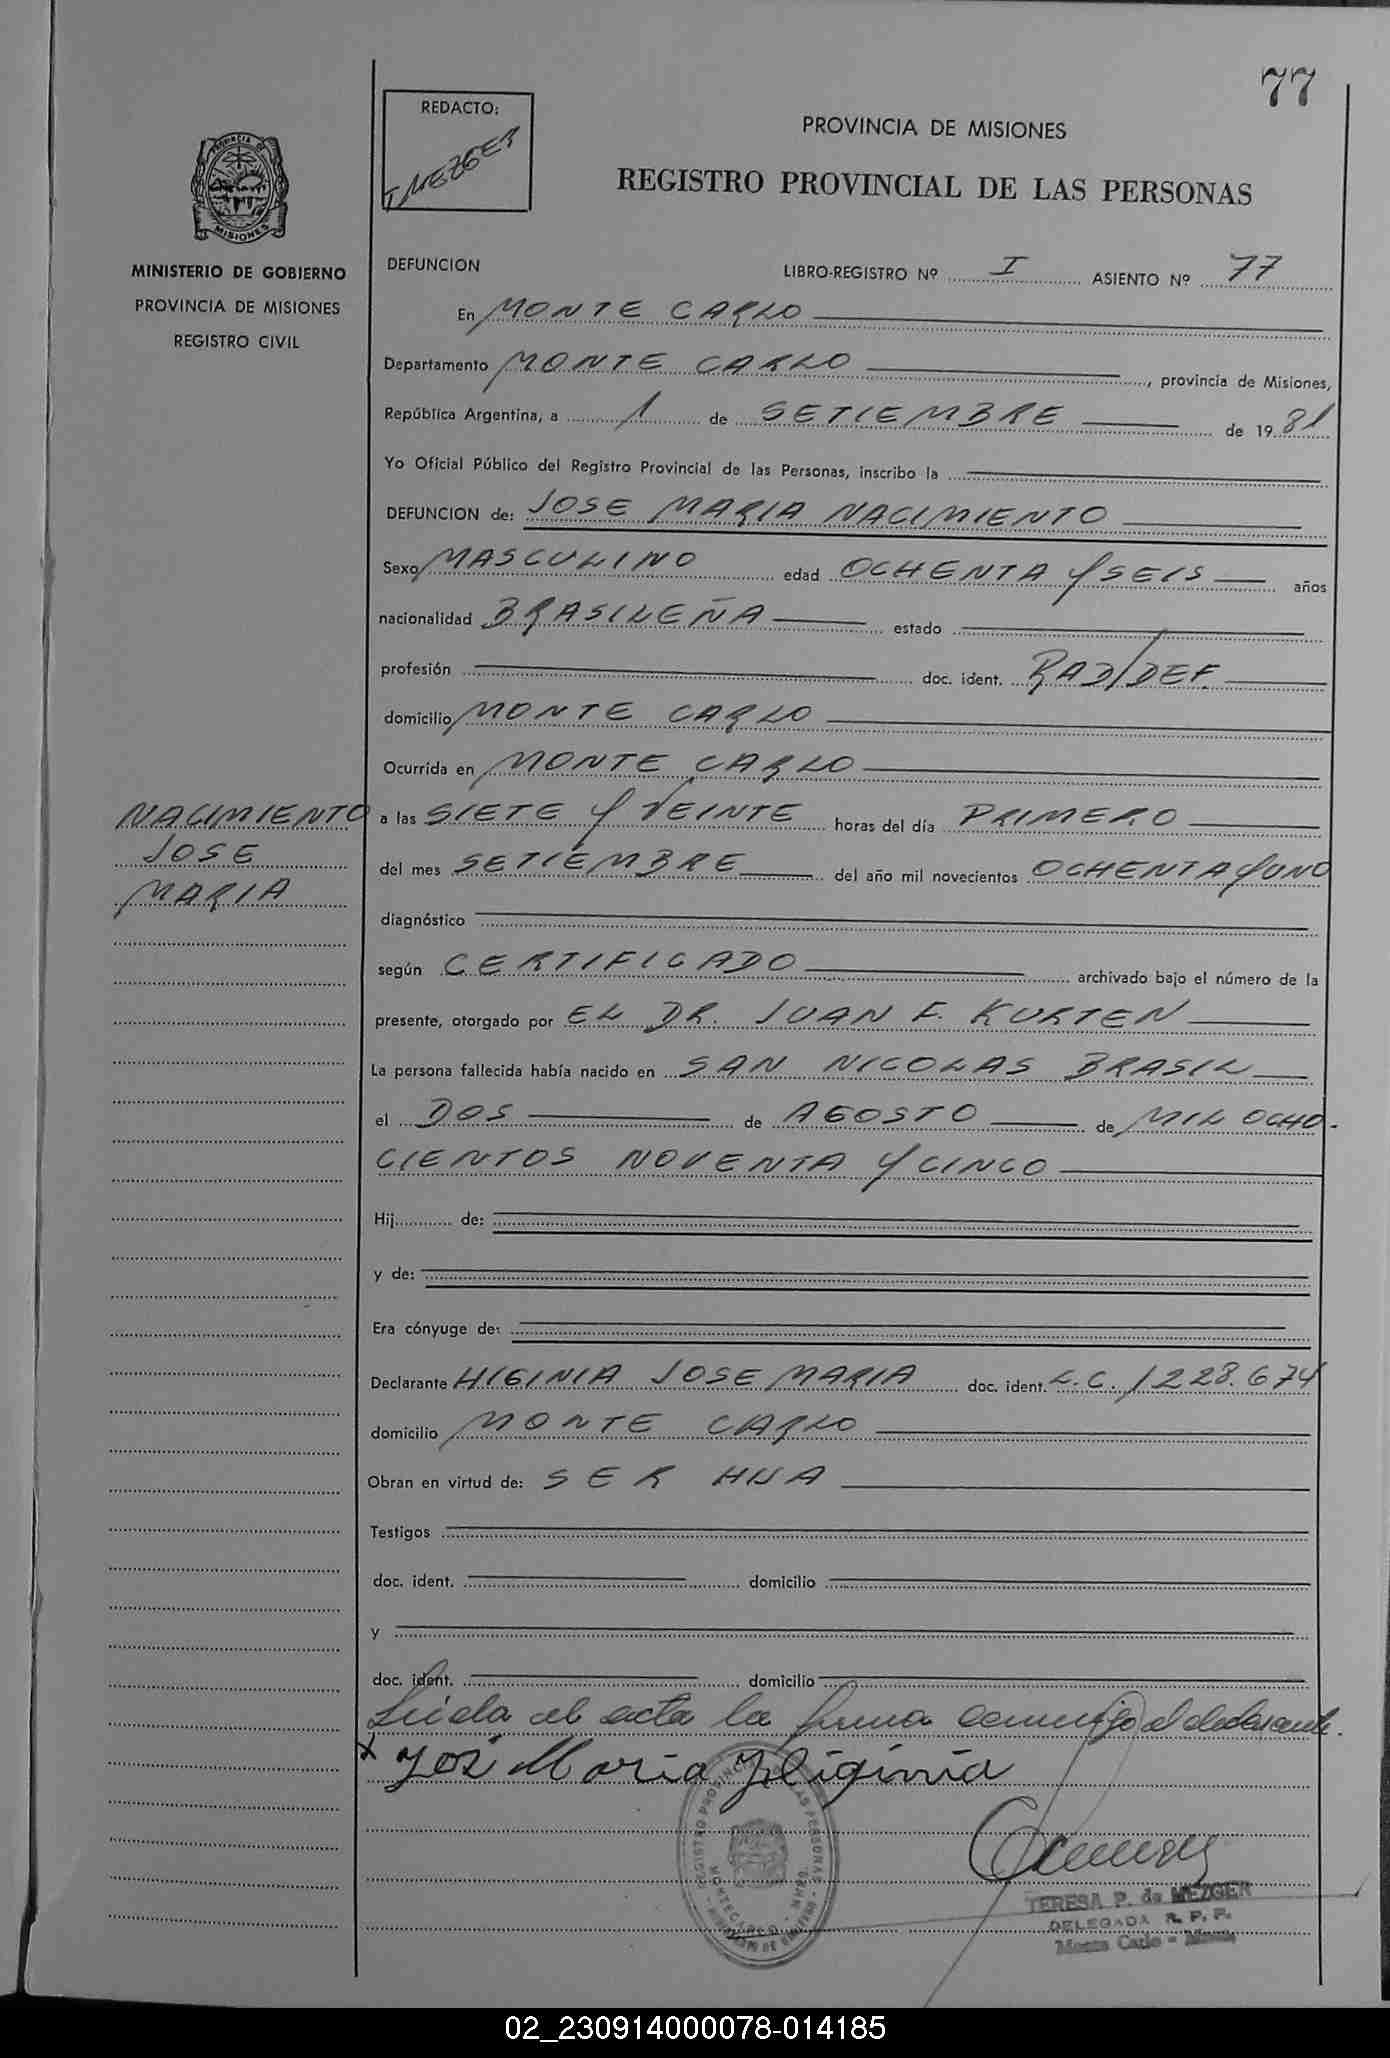 77
REDACTO:
T. MEZGER
PROVINCIA DE MISIONES
REGISTRO PROVINCIAL DE LAS PERSONAS
PROVINCIA DE
MISIONES
MINISTERIO DE GOBIERNO
PROVINCIA DE MISIONES
REGISTRO CIVIL
DEFUNCION LIBRO-REGISTRO Nº I ASIENTO Nº 77
En MONTE CARLO
Departamento MONTE CARLO, provincia de Misiones,
República Argentina, a 1 de SETIEMBRE de 1981
Yo Oficial Público del Registro Provincial de las Personas, inscribo la
DEFUNCION de: JOSE MARIA NACIMIENTO
Sexo MASCULINO edad OCHENTA Y SEIS años
nacionalidad BRASILEÑA estado
profesión doc. ident. RAD/DEF.
domicilio MONTE CARLO
Ocurrida en MONTE CARLO
NACIMIENTO
JOSE
MARIA
a las SIETE Y VEINTE horas del día PRIMERO
del mes SETIEMBRE del año mil novecientos OCHENTA Y UNO
diagnóstico
según CERTIFICADO archivado bajo el número de la
presente, otorgado por EL DR. JUAN F. KURTEN
La persona fallecida había nacido en SAN NICOLAS BRASIL
el DOS de AGOSTO de MIL OCHO-
CIENTOS NOVENTA Y CINCO
Hij de:
y de:
Era cónyuge de:
Declarante HIGINIA JOSE MARIA doc. ident. L.C. 1228.674
domicilio MONTE CARLO
Obran en virtud de: SER HIJA
Testigos
doc. ident. domicilio
y
doc. ident. domicilio
Leida el acta la firma conmigo el declarante.
x José Maria Higinia
REGISTRO PROVINCIAL DE LAS PERSONAS
MONTECARLO
TERESA P. de MEZGER
DELEGADA R. P. P.
Monte Carlo - Mnes.
02_230914000078-014185